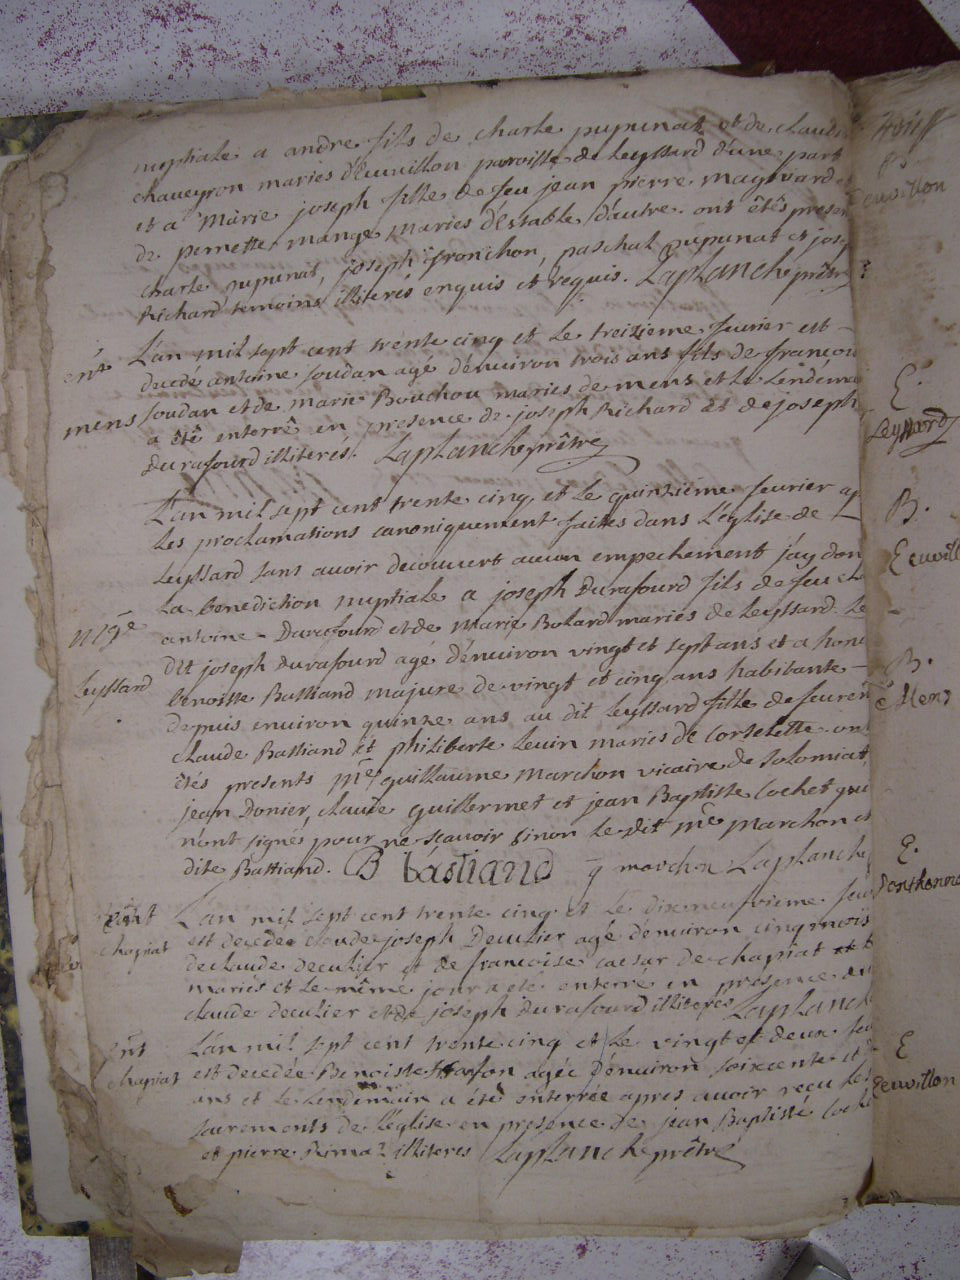 nuptiale a andre fils de charle pupunat et de claudi
chaveyron maries d'Euvillon parroisse de leyssard d'une part
et a Marie joseph fille de feu jean pierre maynard e
de pernette mange maries d'Estable d'autre. ont êtés presen
charle pupunat, joseph fronchon, paschal pupunat et jose
Richard temoins illiterés enquis et requis. Laplanche prêtre
ent
mens
L'an mil sept cent trente cinq et le treizieme feurier est
ducdé antoine soudan agé d'enuiron trois ans fils de françou
soudan et de marie Bouchou maries de mens et le lendema
a êtê interrê en presence de joseph Richard et de joseph
durafourd illiterés. Laplanche prêtre
L'an mil sept cent trente cinq et le quinzième feurier ap
les proclamations canoniquement faites dans l'église de
Leyssard sans avoir decouvert aucun empechement j'ay don
la benediction nuptiale a joseph Durafourd fils de feu cl
mge
antoine Durafourd et de marie Bolard maries de leyssard. le
Dit joseph durafourd age d'enuiron vingt et sept ans et a hon
Leyssard
benoitte Bastiand majure de vingt et cinq ans habitante
depuis enuiron quinze ans au dit leyssard fille de feu ren
claude Bastiand et philiberte leuin maries de Corselette on
êtés presents mre guillaume marchon vicaire de solomiat
jean Donier, claude guillermet et jean Baptiste cochet qui
n'ont signés pour ne scavoir sinon le dit mre marchon et
dite Bastiand. B bastiand g marchon Laplanche
ent
chapiat
L'an mil sept cent trente cinq et le dixneuvieme feu
est decedee claude joseph Deculier agé d'enuiron cinq mois
de claude deculier et de francoise caesar de chapiat
mariés et le même jour a eté enterré en presence du
claude deculier et de joseph durafourd illiteres Laplanch
ent
chapiat
L'an mil sept cent trente cinq et le vingt et deux feu
est decedée Benoiste agée d'enuiron soixcente et
ans et le lendemain a été enterrée apres avoir reçu les
sacrements de l'église en presence de jean Baptiste coche
et pierre illiteres Laplanche prêtre
Euvillon
E.
Leyssard
B.
Euvill
B.
Mens
E.
E
Euvillon